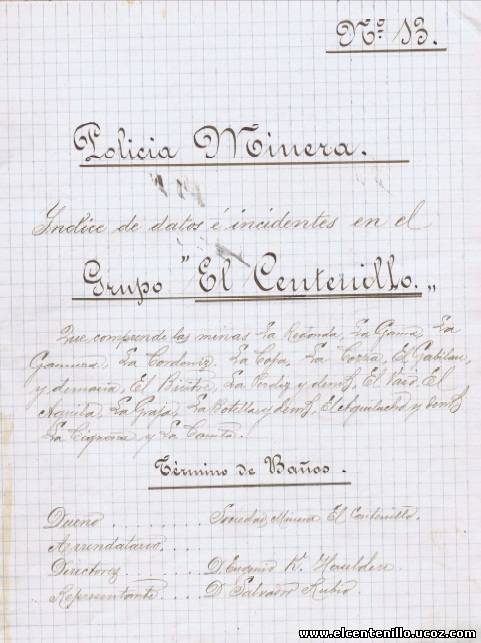 Nº 13.
Policia Minera.
Yndice de datos é incidentes en el
Grupo "El Centenillo.„
Que comprende las minas La Redonda, La Gama, La
La Cordoniz. La La Zorra, El Gabilan
y demasia, El La Perdiz y dem§, El El
Aguila La Graja, La Botella y dem§, El Aguilucho y dem§
La Cigueña y La
Término de Baños.
Dueño . . . . . . . Sociedad Minera El Centenillo.
Arrendatario . . . .
Directores . . . . . D. Eugenio Haulden
Representante . . . . . D. Salvador Rubio
www.elcentenillo.ucoz.com